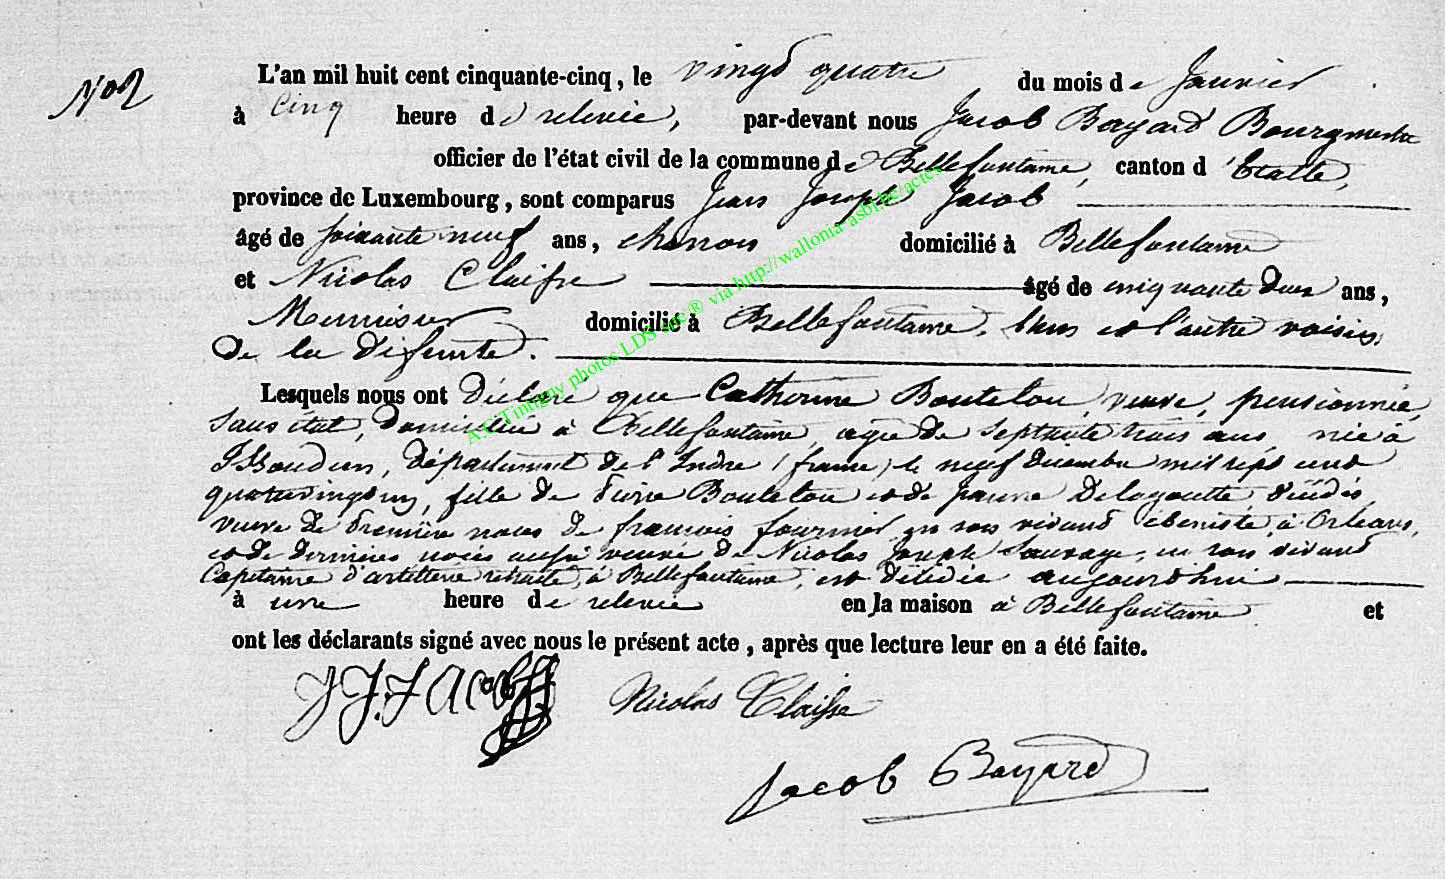 No 2
L'an mil huit cent cinquante-cinq, le vingt quatre du mois de Janvier
à cinq heure de relevée, par-devant nous Jacob Bayard Bourgmestre
officier de l'état civil de la commune de Bellefontaine, canton d'Etalle,
province de Luxembourg, sont comparus Jean Joseph Jacob
âgé de soixante neuf ans, charron domicilié à Bellefontaine
et Nicolas Claisse âgé de cinquante deux ans,
Menuisier domicilié à Bellefontaine, l'un et l'autre voisins
de la défunte.
Lesquels nous ont déclaré que Catherine Boutelou, veuve, pensionnée,
sans état, domiciliée à Bellefontaine, agée de septante trois ans, née à
Issoudun, département de l'Indre (france) le neuf décembre mil sept cent
quatrevingt un, fille de Pierre Boutelou et de Jeanne Delagoutte, décédés,
veuve de première noces de francois fournier en son vivant ébeniste à Orléans,
et de dernières noces aussi veuve de Nicolas Joseph Sauvage, en son vivant
Capitaine d'artillerie retraité, à Bellefontaine, est décédée aujourd'hui
à une heure de relevée en la maison à Bellefontaine et
ont les déclarants signé avec nous le présent acte, après que lecture leur en a été faite.
J J. Jacob Nicolas Claisse
Jacob Bayard
A.C Tintigny photos LDS site ® via http://wallonia-asbl.be/actes